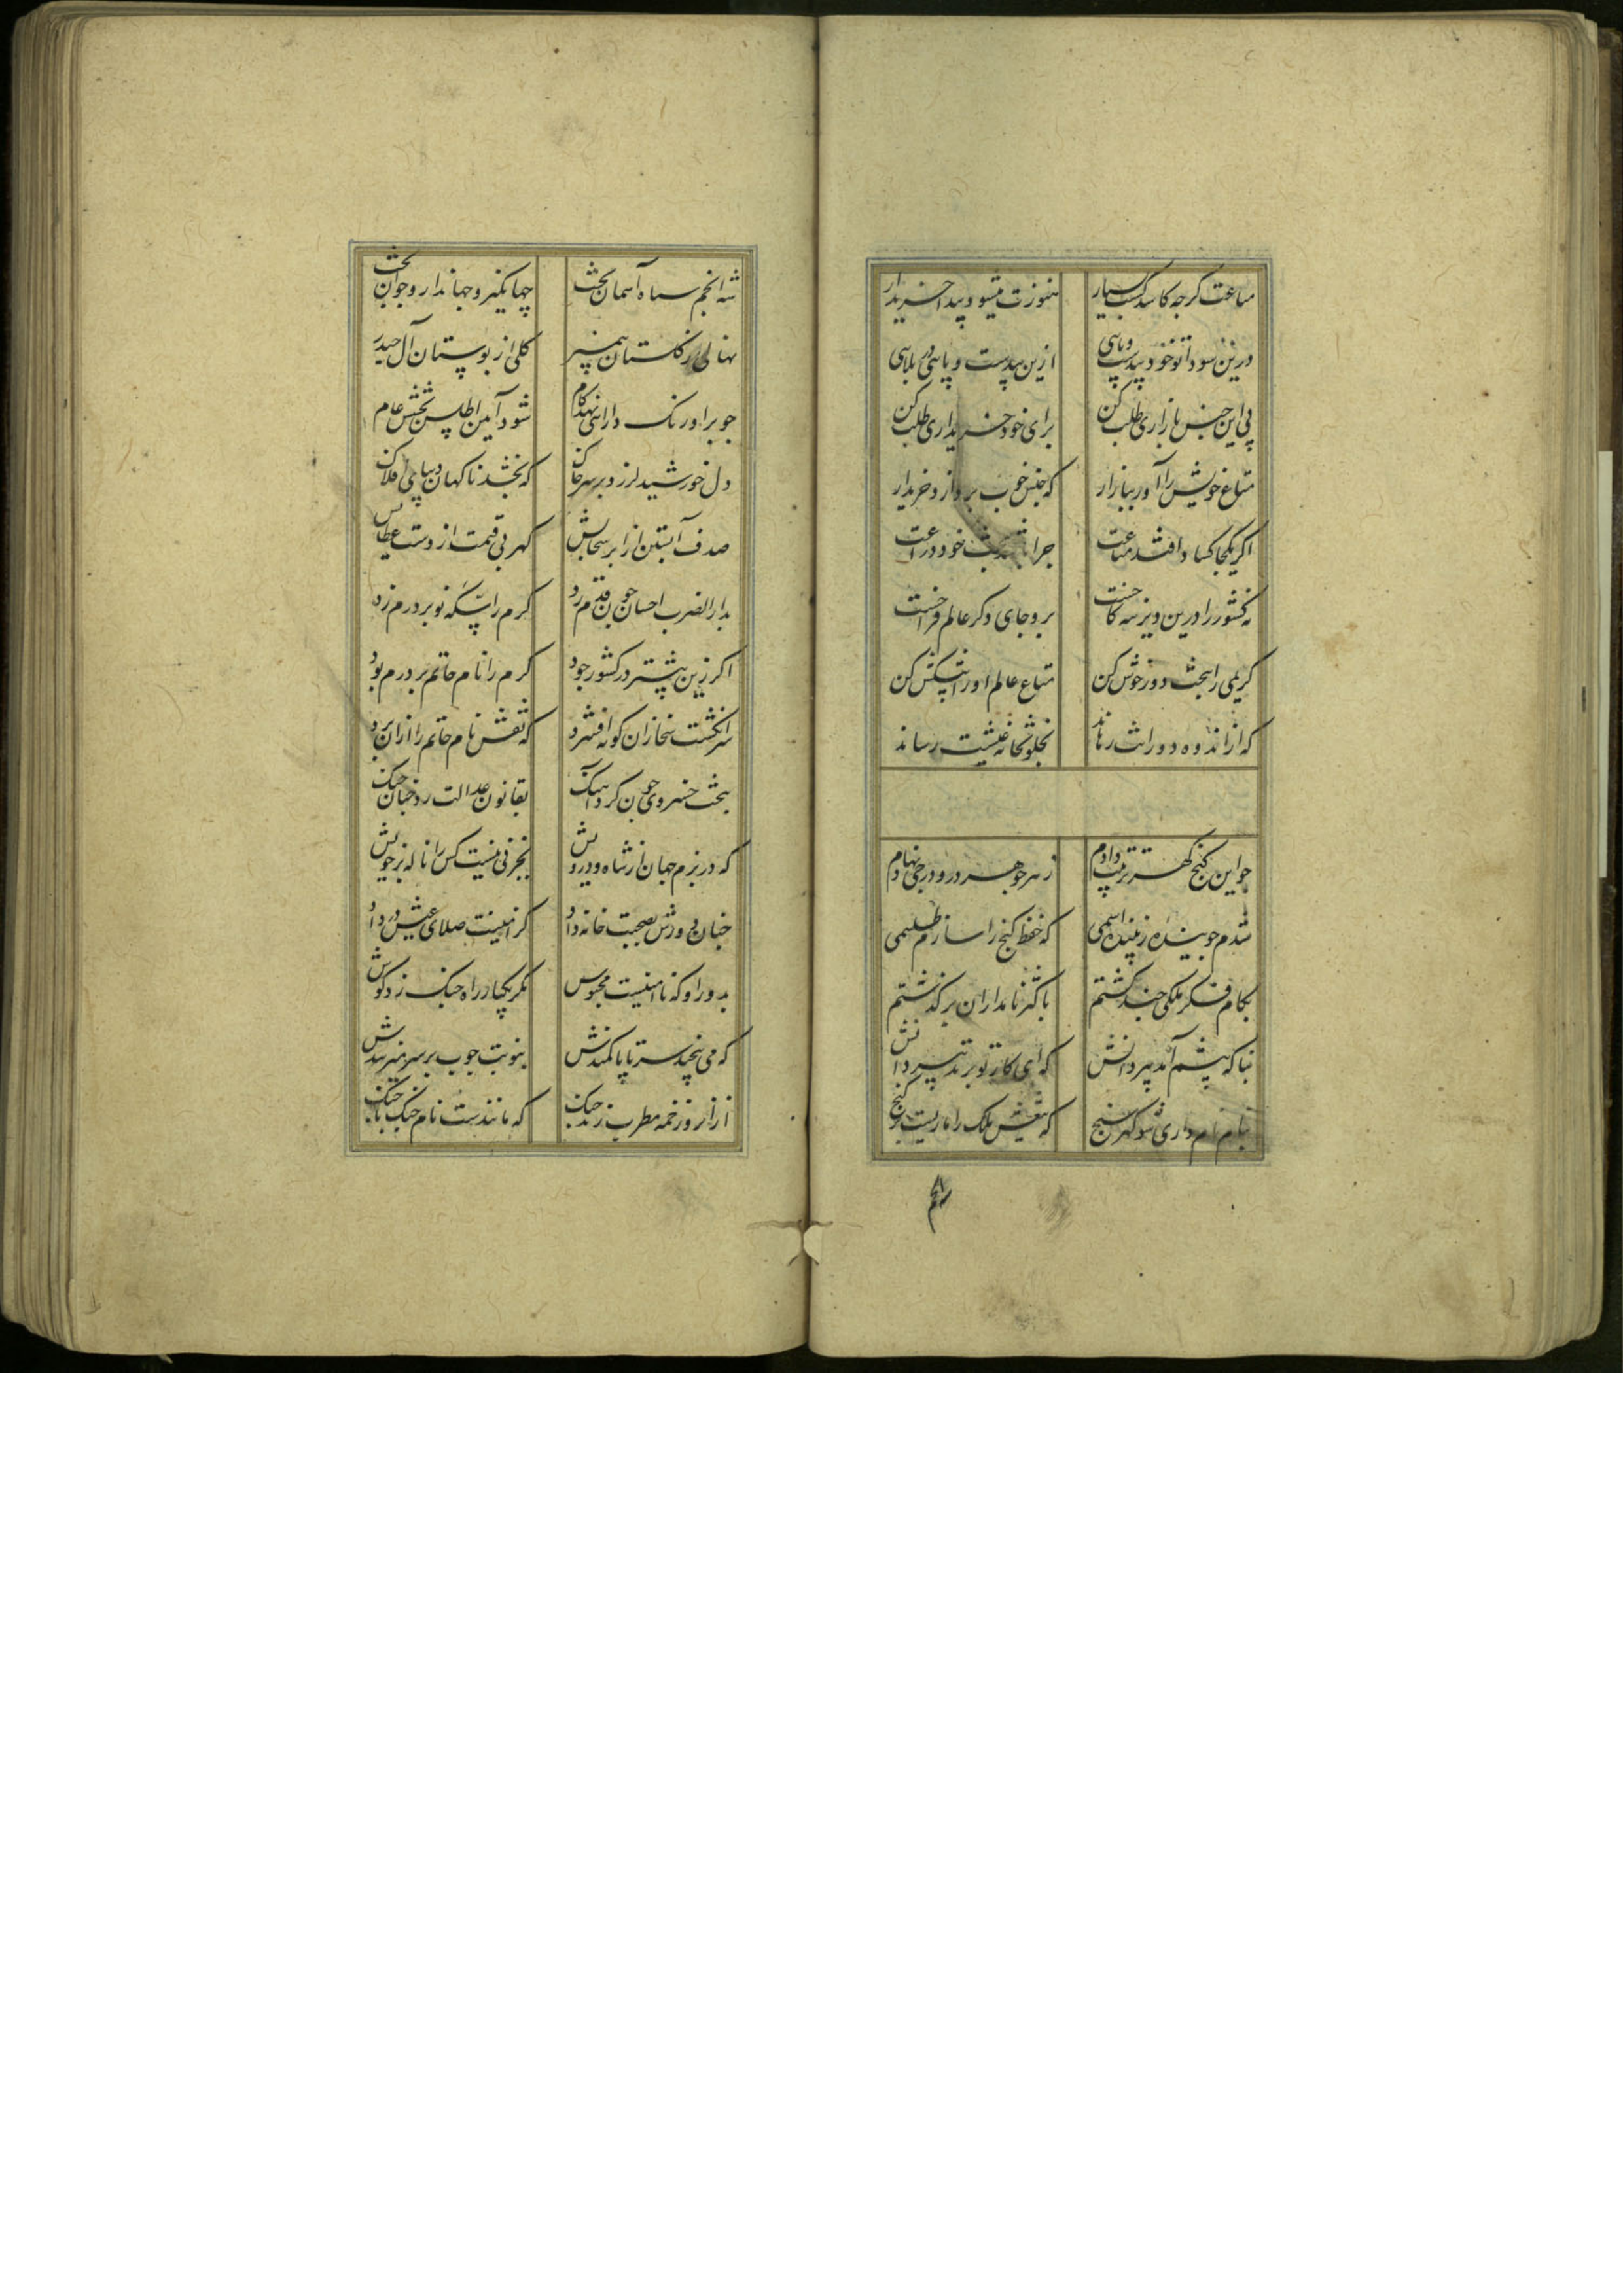 متاعت کرجه کاسد کشت بسیار هنوزت میشود پیدا خریدار
درین سودا تو خود بیدست وپایی ازین بیدست و پایی در بلایی
پی این جنس بازاری طلب کن برای خود خریداری طلب کن
متاع خویش را آور ببازار که جنس خوب بردارد خریدار
اکر یکجا کساد افتد متاعت جرا باشد بخت خود نزاعت
نه کشور را درین ویرانه کاخست برو جای دکر عالم فراخست
کریمی را بجث و وردخوش کن متاع عالم او را پیشکش کن
که از اندوه دورانت رهاند بخلوتخانه عیشت رساند
جو این کنج کهر ترتیب دادم زهر جوهر درو درجی نهادم
شدم جوینده زیبنده اسمی که حفظ کنج را سازم طلسمی
بکام فکر ملکی جند کشتم باکثر نامداران برکذشتم
بناکه پیشم آمد پیر دانش که ای کار تو بر تدبیر دانش
بنام نامداری شو کهرسنج که تیغش ملک را ماریست بر کنج
شه انجم
شه انجم سپاه آسمان تخت جهانکیر و جهاندار و جوانبخت
نهالی از کلستان پیمبر کلی از بوستان آل حیدر
جو بر اورنک دارایی نهد کام شود آیین اطلس بخشش عام
دل خورشید لرزد بر سر خاک که بخشد ناکهان دیبای افلاک
صدف آبستن از ابر سخایش کهر بی قیمت از دست عطایش
بدار الضرب احسان جون قدم زد کرم را سکه نو بر درم زد
اکر زین پیشتر در کشور جود کرم را نام حاتم بر درم بود
سرانکشت سخا زان کونه افشرد که نقش نام حاتم را ازان برد
بتخت خسروی جون کرد آهنک بقانون عدالت زد جنان جنک
که در بزم جهان از شاه و درویش بجز نی نیست کس را ناله از خویش
جنان دورش بصحبت خانه داد کز امنیت صلای عیش در داد
بدور او که ناامنیست محبوس مکر یکبار راه جنک زد کوس
که می پیچد سر تا پا کمندش بنوبت جوب بر سر میزنندش
ازان رو زخمه مطرب زند جنک که مانندست نام جنک با جنک